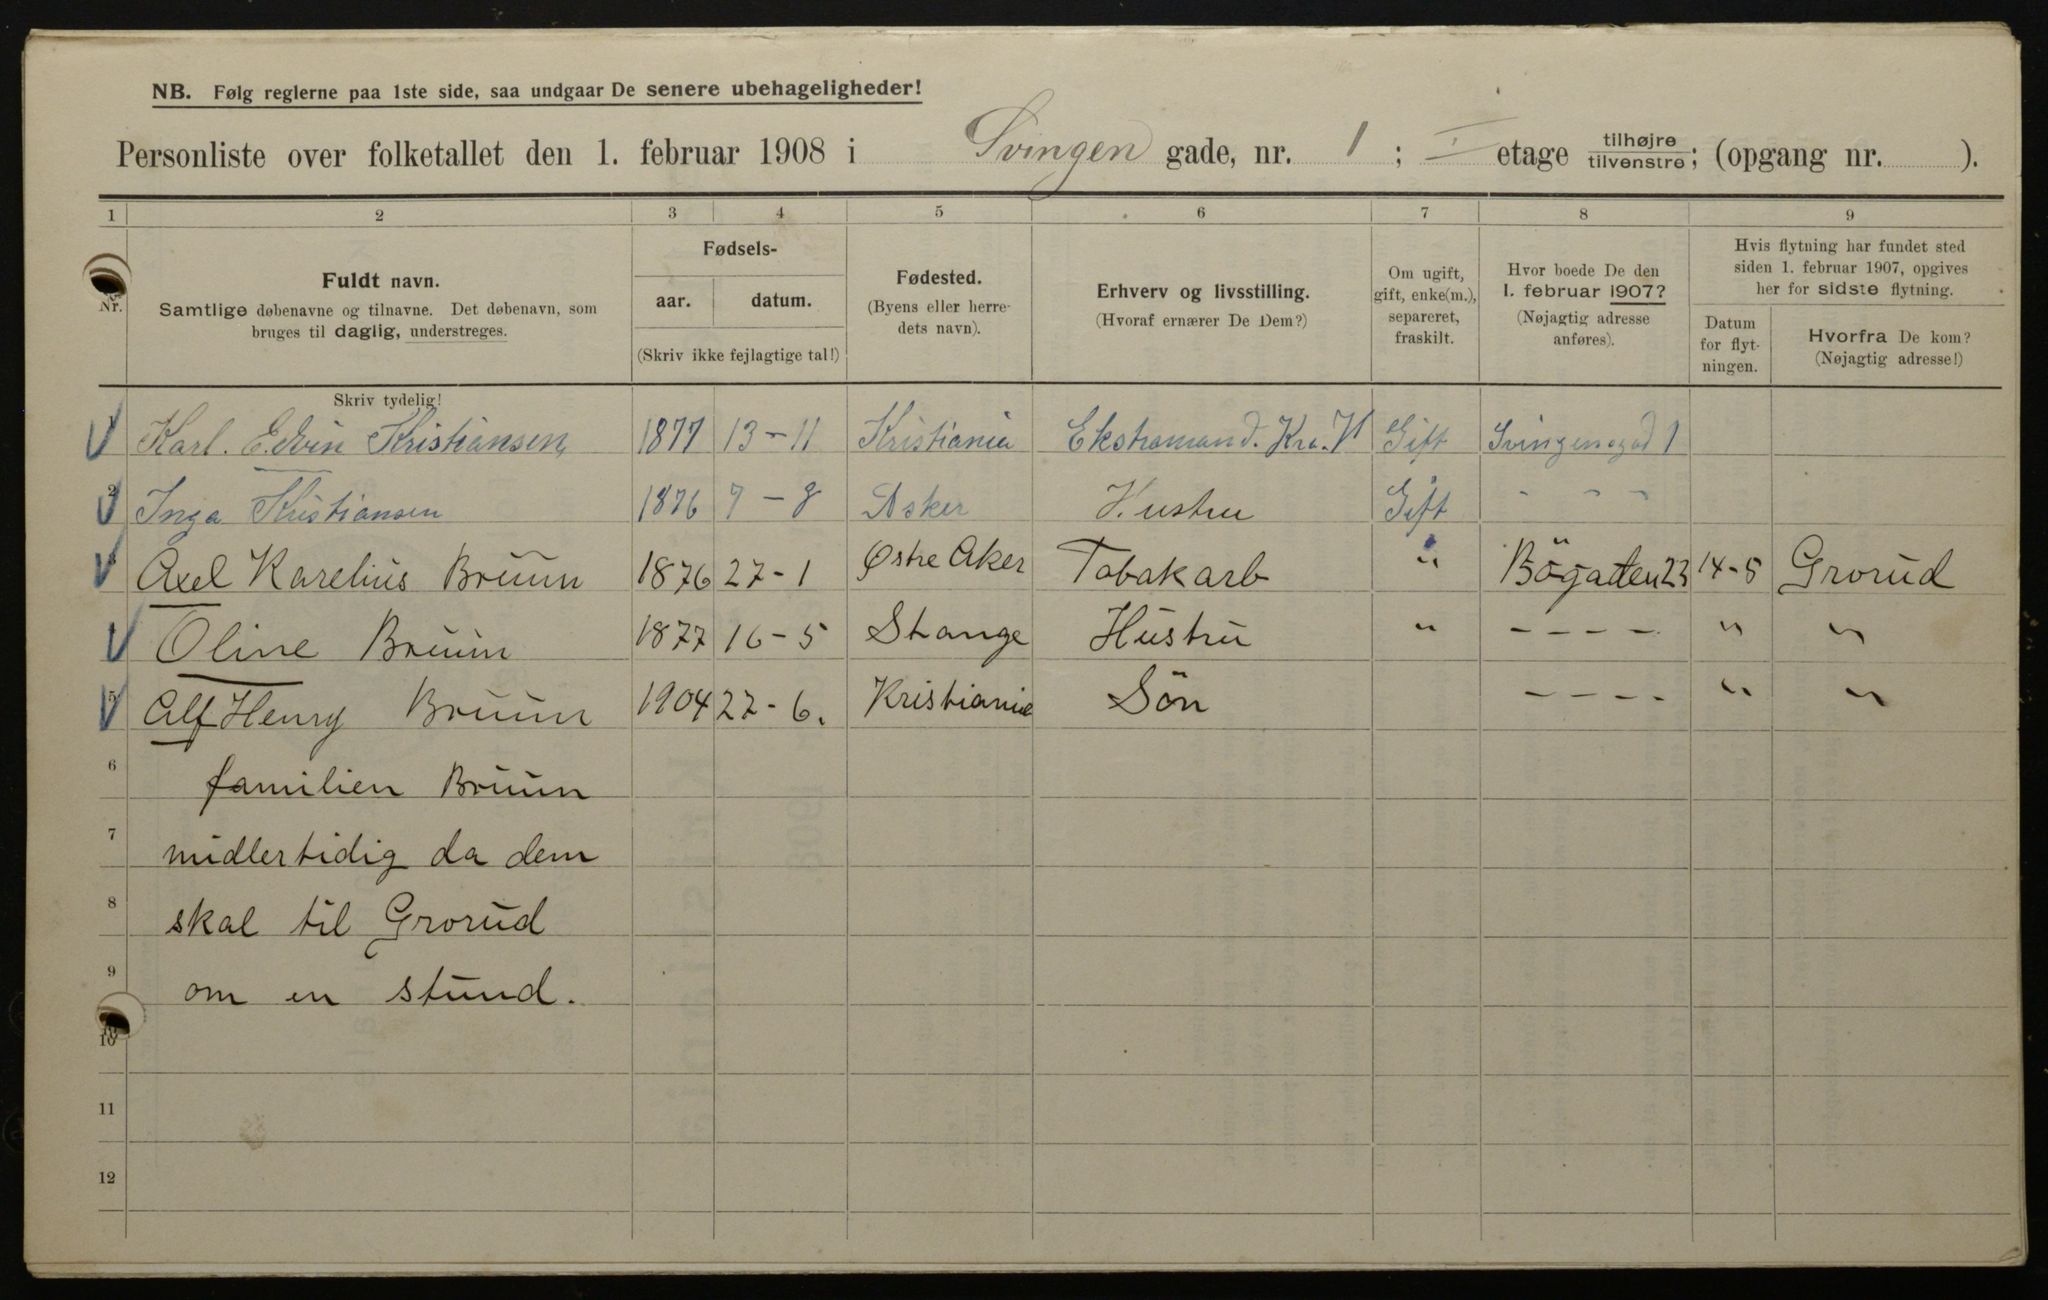 NB. Følg reglerne paa 1ste side, saa undgaar De senere ubehageligheder!
Personliste over folketallet den 1. februar 1908 i Svingen gade, nr. 1 ; I etage tilhøjre tilvenstre; (opgang nr. ).
1 2 3 4 5 6 7 8 9
Nr. Fuldt navn. Samtlige døbenavne og tilnavne. Det døbenavn, som bruges til daglig, understreges.
Fødsels- aar. datum. (Skriv ikke fejlagtige tal!)
Fødested. (Byens eller herredets navn).
Erhverv og livsstilling. (Hvoraf ernærer De Dem?)
Om ugift, gift, enke(m.), separeret, fraskilt.
Hvor boede De den 1. februar 1907? (Nøjagtig adresse anføres).
Hvis flytning har fundet sted siden 1. februar 1907, opgives her for sidste flytning.
Datum for flytningen. Hvorfra De kom? (Nøjagtig adresse!)
Skriv tydelig!
1 Karl. Edvin Kristiansen 1877 13-11 Kristiania Ekstramand. Kra. V Gift Svingensgad 1
2 Inga Kristiansen 1876 7-8 Asker Hustru Gift - - -
Axel Karelius Bruun 1876 27-1 Østre Aker Tobakarb " Bögaden 23 14-5 Grorud
Oline Bruun 1877 16-5 Stange Hustru " - - - - " "
5 Alf Henry Bruun 1904 27-6. Kristiania Sön - - - - " "
6 familien Bruun
7 midlertidig da dem
8 skal til Grorud
9 om en stund.
10
11
12